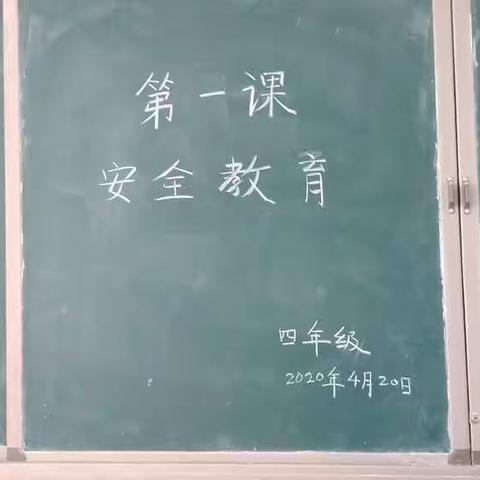 第一课
安全教育
四年级
2020年4月20日